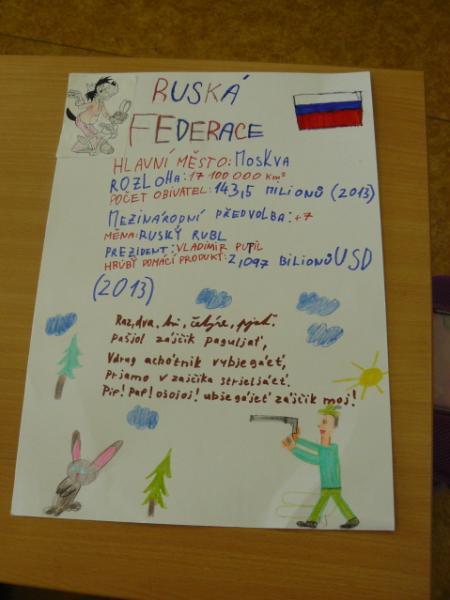 RUSKÁ
FEDERACE
HLAVNÍ MĚSTO: MOSKVA
ROZLOHA: 17 100 000 km²
POČET OBÍVATEL: 143,5 MILIONŮ (2013)
MEZINÁRODNÍ PŘEDVOLBA: +7
MĚNA: RUSKÝ RUBL
PREZIDENT: VLADIMIR PUTIL
HRUBÝ DOMÁCÍ PRODUKT: 2,097 BILIONŮ USD
(2013)
Raz, dva, tri, četýre, pjať.
Pašjol zájčik paguljať,
Vdrug achótnik vybjegáeť,
Prjamo v zajčika strjeljáeť.
Pif! Paf! ojojoj! ubjegájeť zájčik moj!